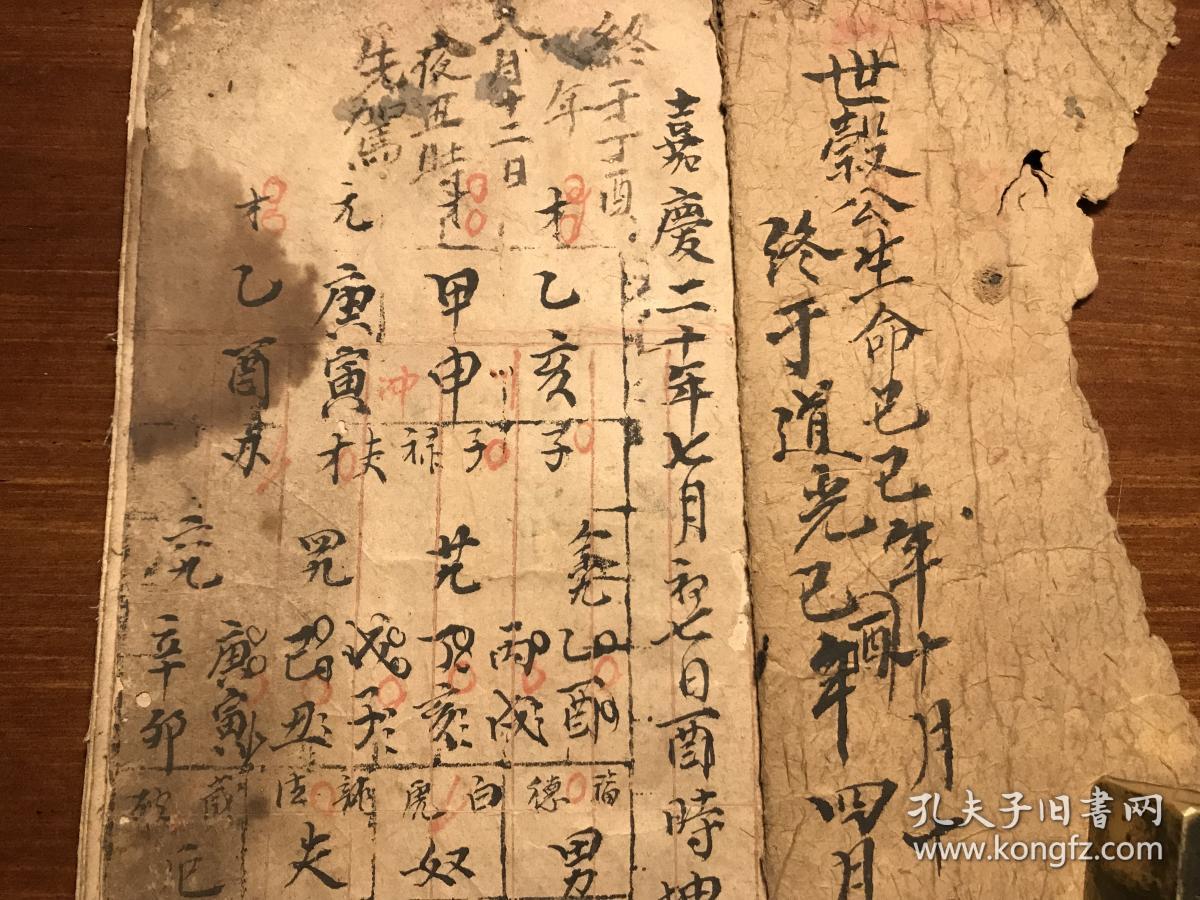 世榖公生命己巳年十月十
酉
终于道光己年四月
嘉慶二十年七月初七日酉時
終于丁酉
年
八月十二日
夜丑时
先駕
才
才
元
才
乙亥
甲申
庚寅
乙酉
冲
子
子禄
夫才
九
卅九
四九
六九
乙酉
丙戌
丁亥
戊子
己丑
庚寅
辛卯
福德
白虎
龍德
男
奴
夫
孔夫子旧书网
www.kongfz.com